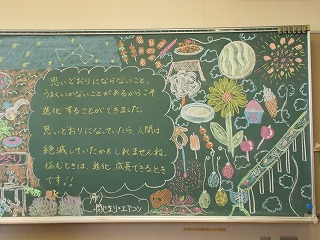 思いどおりにならないこと、
うまくいかないことがあるからこそ
進化することができました。
思いどおりになっていたら、人間は
絶滅していたかもしれませんね。
悩むときは、進化、成長できるとき
です!!